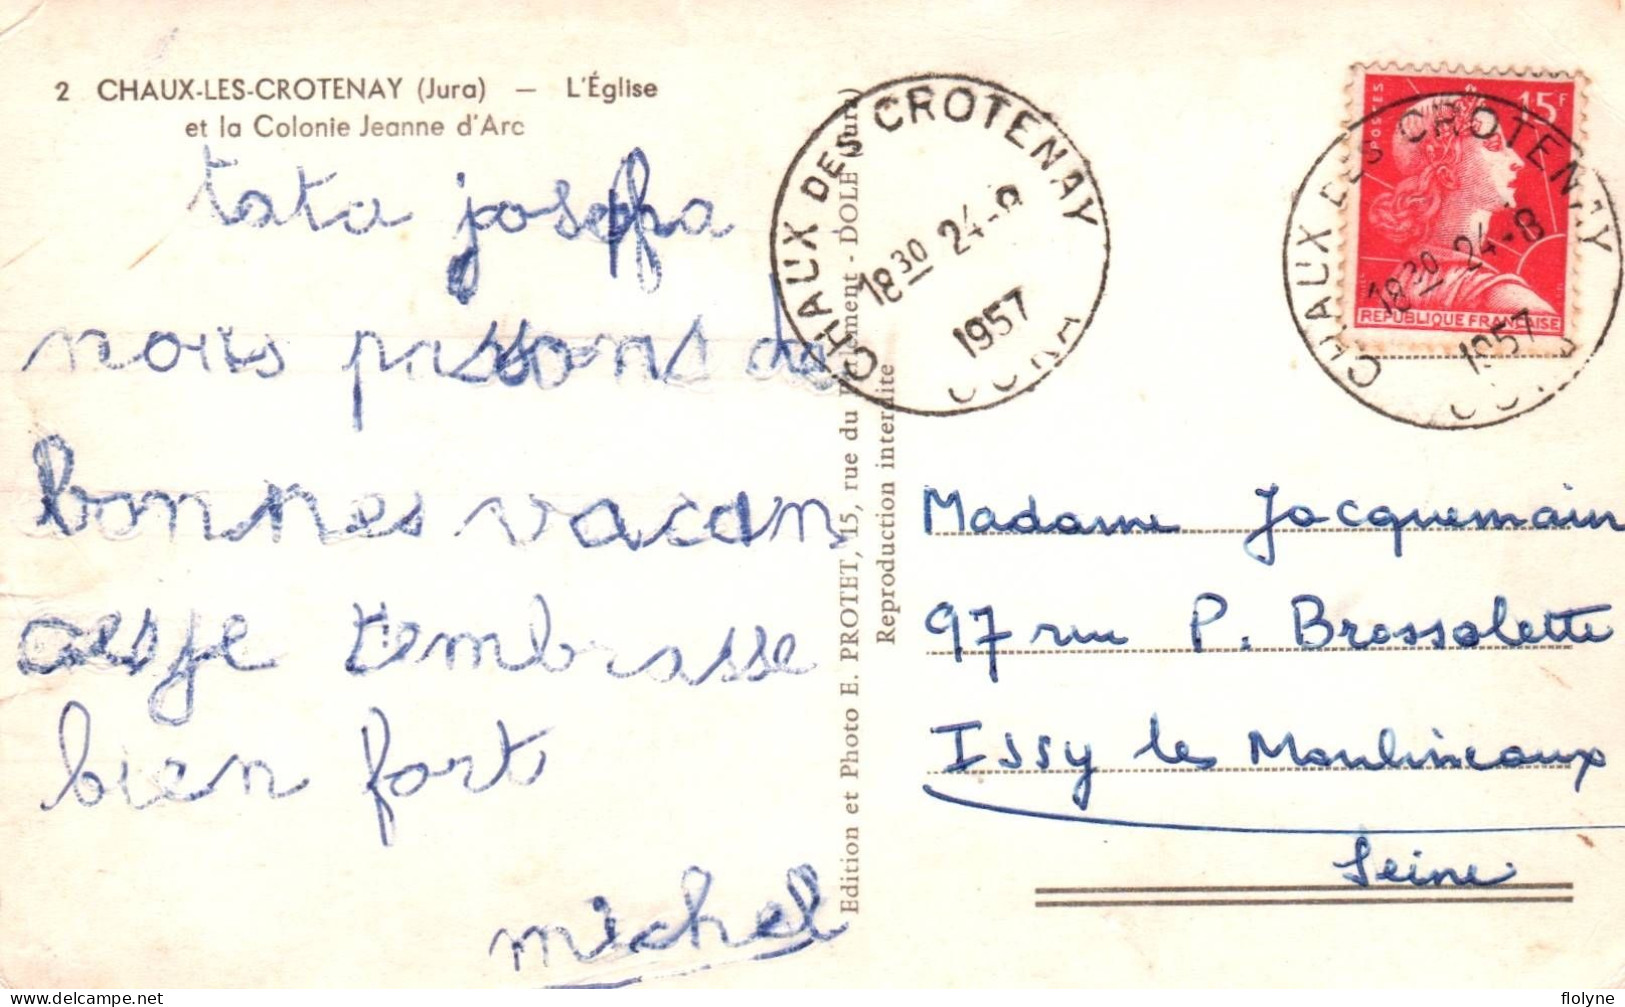 2 CHAUX-LES-CROTENAY (Jura) — L'Église
et la Colonie Jeanne d'Arc
tata josepha
nous passons de
bonnes vacan
ces je t'embrasse
bien fort
michel
Edition et Photo E. PROTET, 15, rue du - DOLE (Jura)
Reproduction interdite
CHAUX DES CROTENAY
18 30 24-8
1957
JURA
POSTES
15F
REPUBLIQUE FRANÇAISE
CHAUX DES CROTENAY
18 30 24-8
1957
JURA
Madame Jacquemain
97 rue P. Brossolette
Issy les Moulineaux
Seine
delcampe.net
floyne